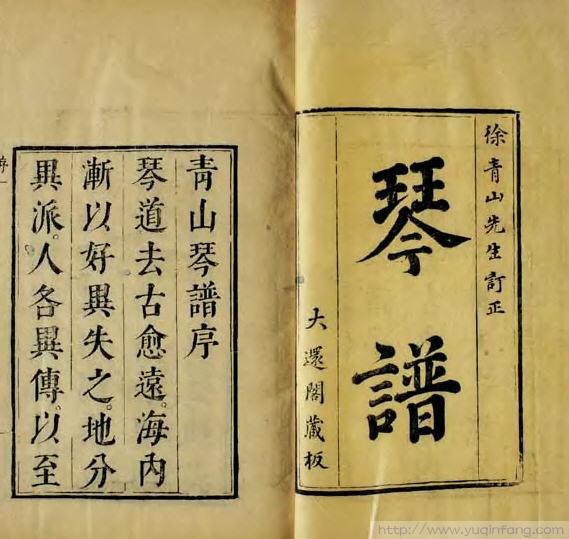 徐青山先生訂正
琴譜
大還閣藏板
青山琴譜序
琴道去古愈遠。海內
漸以好異失之。地分
異派。人各異傳。以至
序
http://www.yuqinfang.com